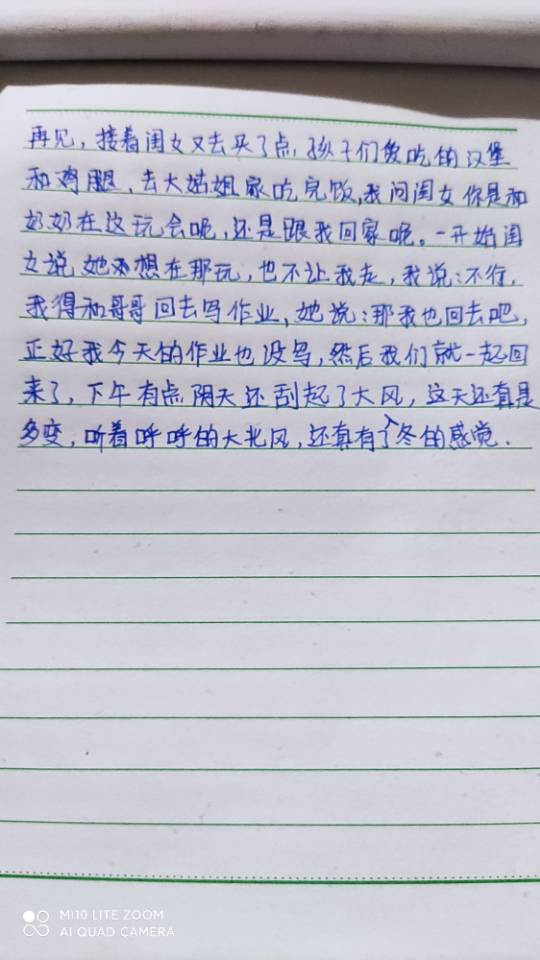 再见，接着闺女又去买了点，孩子们爱吃的汉堡
和鸡腿、去大姑姐家吃完饭，我问闺女你是和
奶奶在这玩会呢，还是跟我回家呢。一开始闺
女说她想在那玩，也不让我走，我说：不行，
我得和哥哥回去写作业，她说：那我也回去吧，
正好我今天的作业也没写，然后我们就一起回
来了，下午有点阴天还刮起了大风，这天还真是
多变，听着呼呼的大北风，还真有了入冬的感觉.
MI10 LITE ZOOM
AI QUAD CAMERA